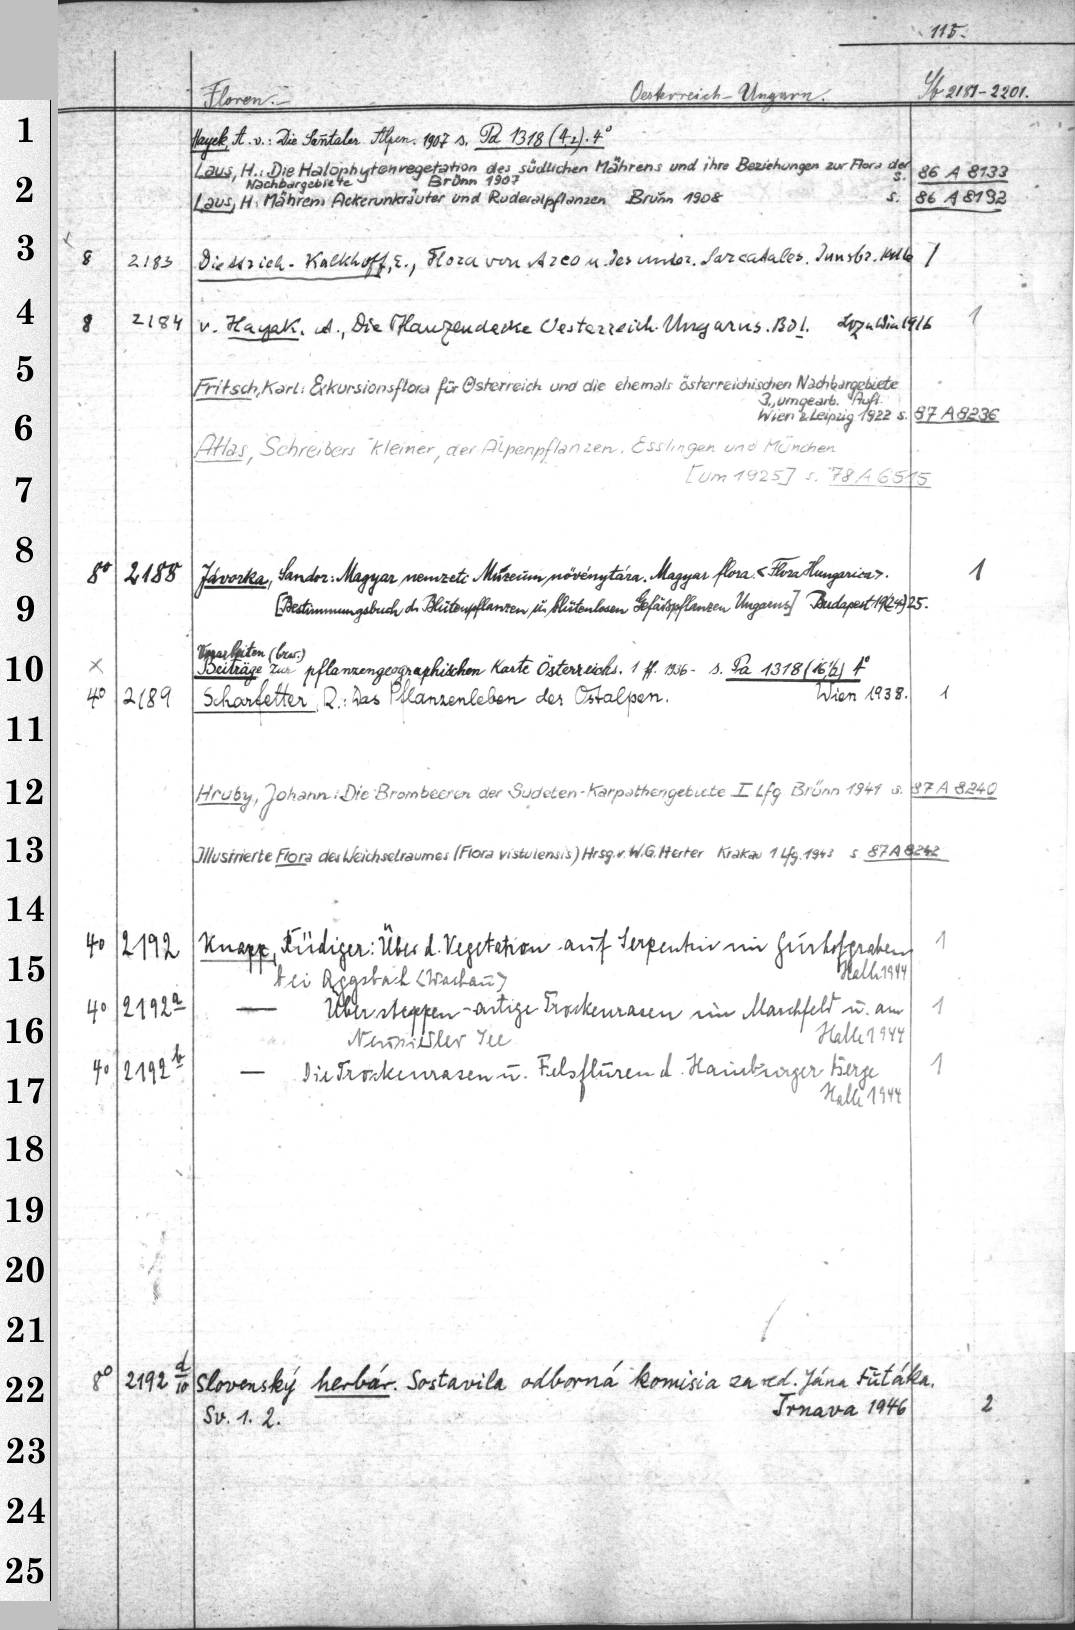 115.
Floren. Oesterreich-Ungarn. 2181-2201.
1 Hayek, A. v.: Die Sanntaler Alpen. 1907 s. Pd 1318 (4,2). 4°
Laus, H.: Die Halophytenvegetation des südlichen Mährens und ihre Beziehungen zur Flora der
Nachbargebiete Brünn 1907 s. 86 A 8133
2 Laus, H. Mährens Ackerunkräuter und Ruderalpflanzen Brünn 1908 s. 86 A 8132
3 8 2183 Diettrich-Kalkhoff, E., Flora von Arco u. des unter. Sarcatales. Innsbr. 1
4 8 2184 v. Hayek. A., Die Pflanzendecke Oesterreich-Ungarns. Bd 1. Lpz u Wien 1916 1
5 Fritsch, Karl: Exkursionsflora für Österreich und die ehemals österreichischen Nachbargebiete
3., umgearb. Aufl.
6 Wien & Leipzig 1922 s. 87 A 8236
Atlas, Schreibers kleiner, der Alpenpflanzen. Esslingen und München
7 [um 1925] s. 78 A 6515
8 8° 2188 Jávorka, Sandor: Magyar nemzeti Múzeum növénytára. Magyar flora. <Flora Hungarica>. 1
9 [Bestimmungsbuch d. Blütenpflanzen u. blütenlosen Gefäßpflanzen Ungarns] Budapest 19(24)25.
Vorarbeiten (bzw.)
10 × Beiträge zur pflanzengeographischen Karte Österreichs. 1 ff. 1936- s. Pa 1318 (16 1/2) 4°
4° 2189 Scharfetter, R.: Das Pflanzenleben der Ostalpen. Wien 1938. 1
11
12 Hruby, Johann: Die Brombeeren der Sudeten-Karpathengebiete I Lfg Brünn 1941 s. 87 A 8240
13 Illustrierte Flora des Weichselraumes (Flora vistulensis) Hrsg. v. W.G. Herter Krakau 1 Lfg. 1943 s 87 A 8242
14
4° 2192 Knapp, Rüdiger: Über d. Vegetation auf Serpentin im Gurhofgraben 1
15 bei Aggsbach <Wachau> Halle 1944
4° 2192a — Über steppen-artige Trockenrasen im Marchfeld u. am 1
16 Neusiedler See Halle 1944
4° 2192b — Die Trockenrasen u. Felsfluren d. Hainburger Berge 1
17 Halle 1944
18
19
20
21
22 8° 2192 d/10 Slovenský herbár. Sostavila odborná komisia za red. Jána Futáka.
Sv. 1. 2. Trnava 1946 2
23
24
25